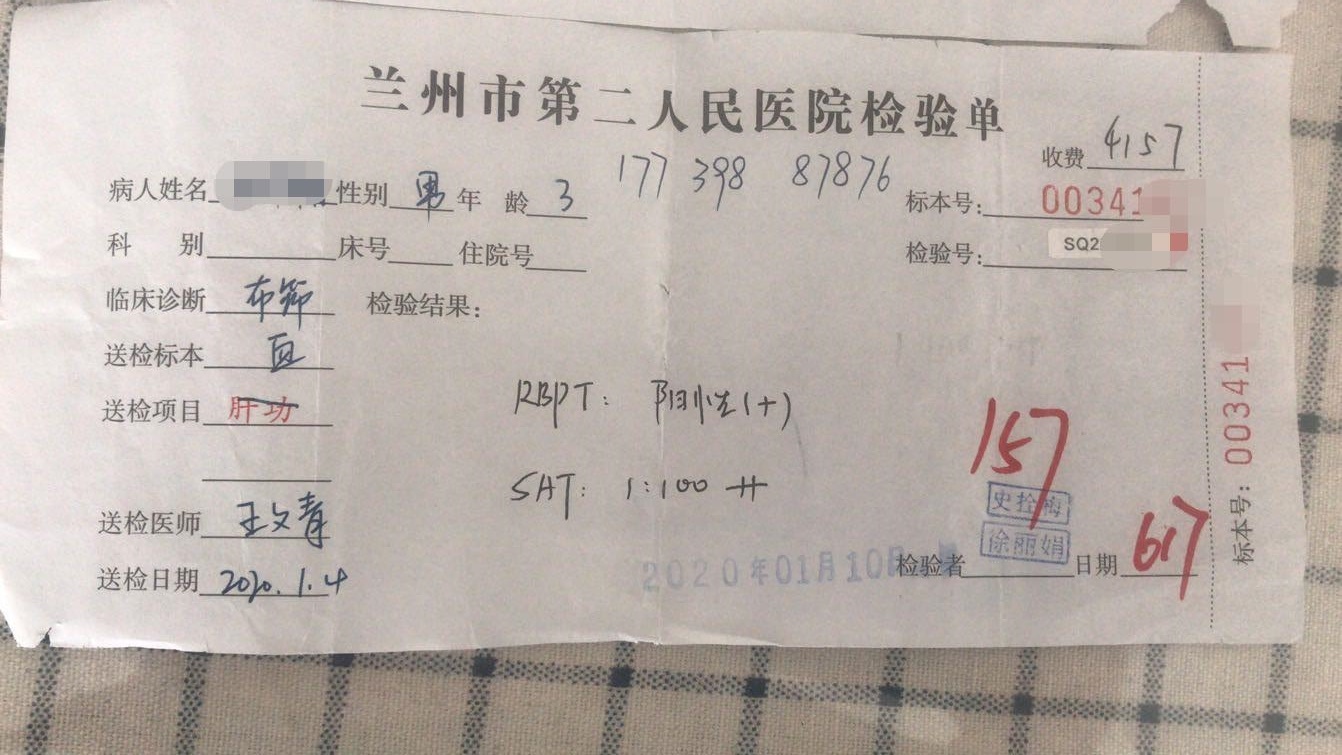 兰州市第二人民医院检验单
收费 4157
病人姓名 性别 男 年 龄 3 177 398 87876 标本号: 00341
科 别 床号 住院号 检验号: SQ2
临床诊断 布筛 检验结果:
送检标本 血
送检项目 肝功
RBPT: 阳性(+)
SAT: 1:100 ++
157
史拴梅
徐丽娟
送检医师 王文青
送检日期 2020.1.4
2020年01月10日 检验者 日期 617
标本号: 00341